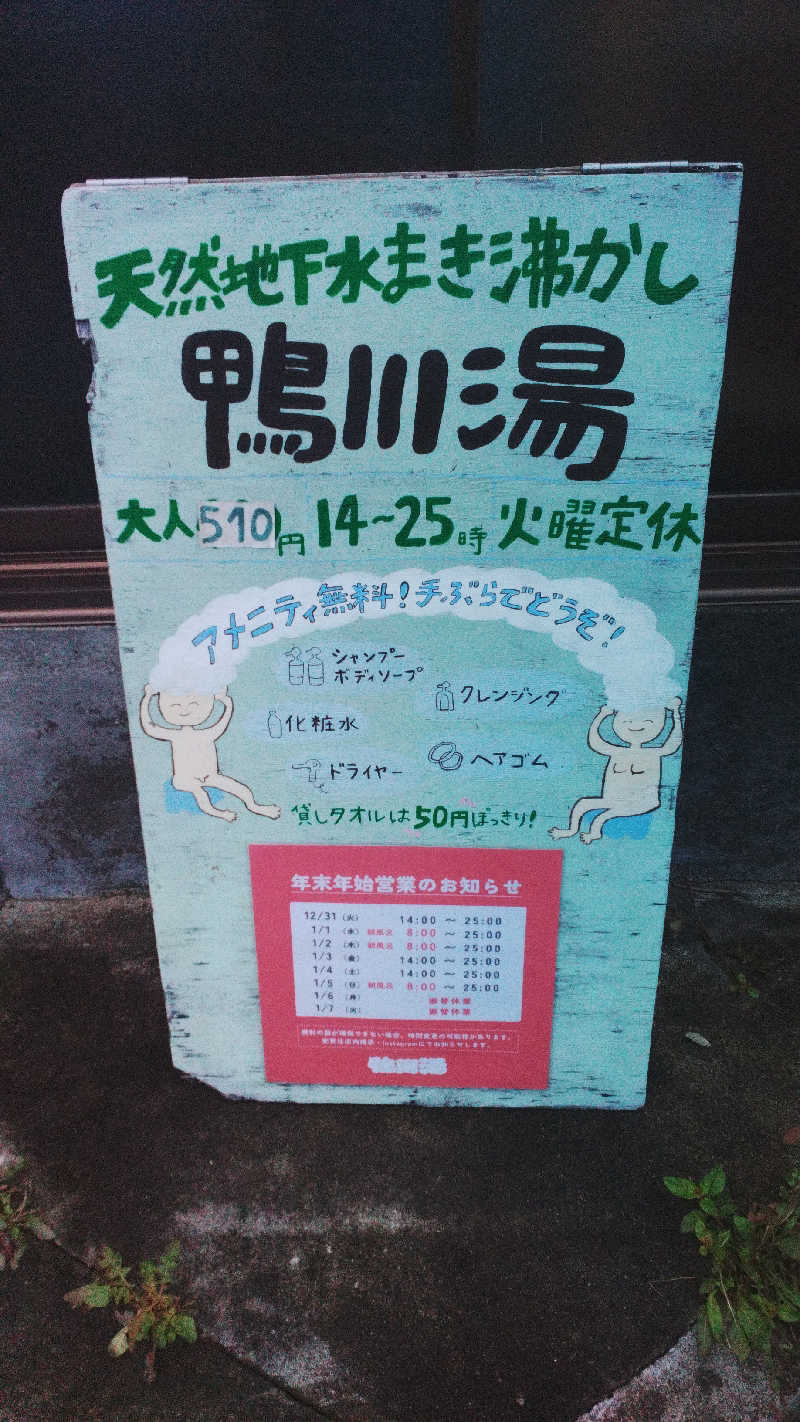 天然地下水まき沸かし
鴨川湯
大人510円 14~25時 火曜定休
アメニティ無料!手ぶらでどうぞ!
シャンプー
ボディソープ
クレンジング
化粧水
ドライヤー
ヘアゴム
貸しタオルは50円ぽっきり!
年末年始営業のお知らせ
12/31 (火) 14:00 ~ 25:00
1/1 (水) 朝風呂 8:00 ~ 25:00
1/2 (木) 朝風呂 8:00 ~ 25:00
1/3 (金) 14:00 ~ 25:00
1/4 (土) 14:00 ~ 25:00
1/5 (日) 朝風呂 8:00 ~ 25:00
1/6 (月) 振替休業
1/7 (火) 振替休業
鴨川湯